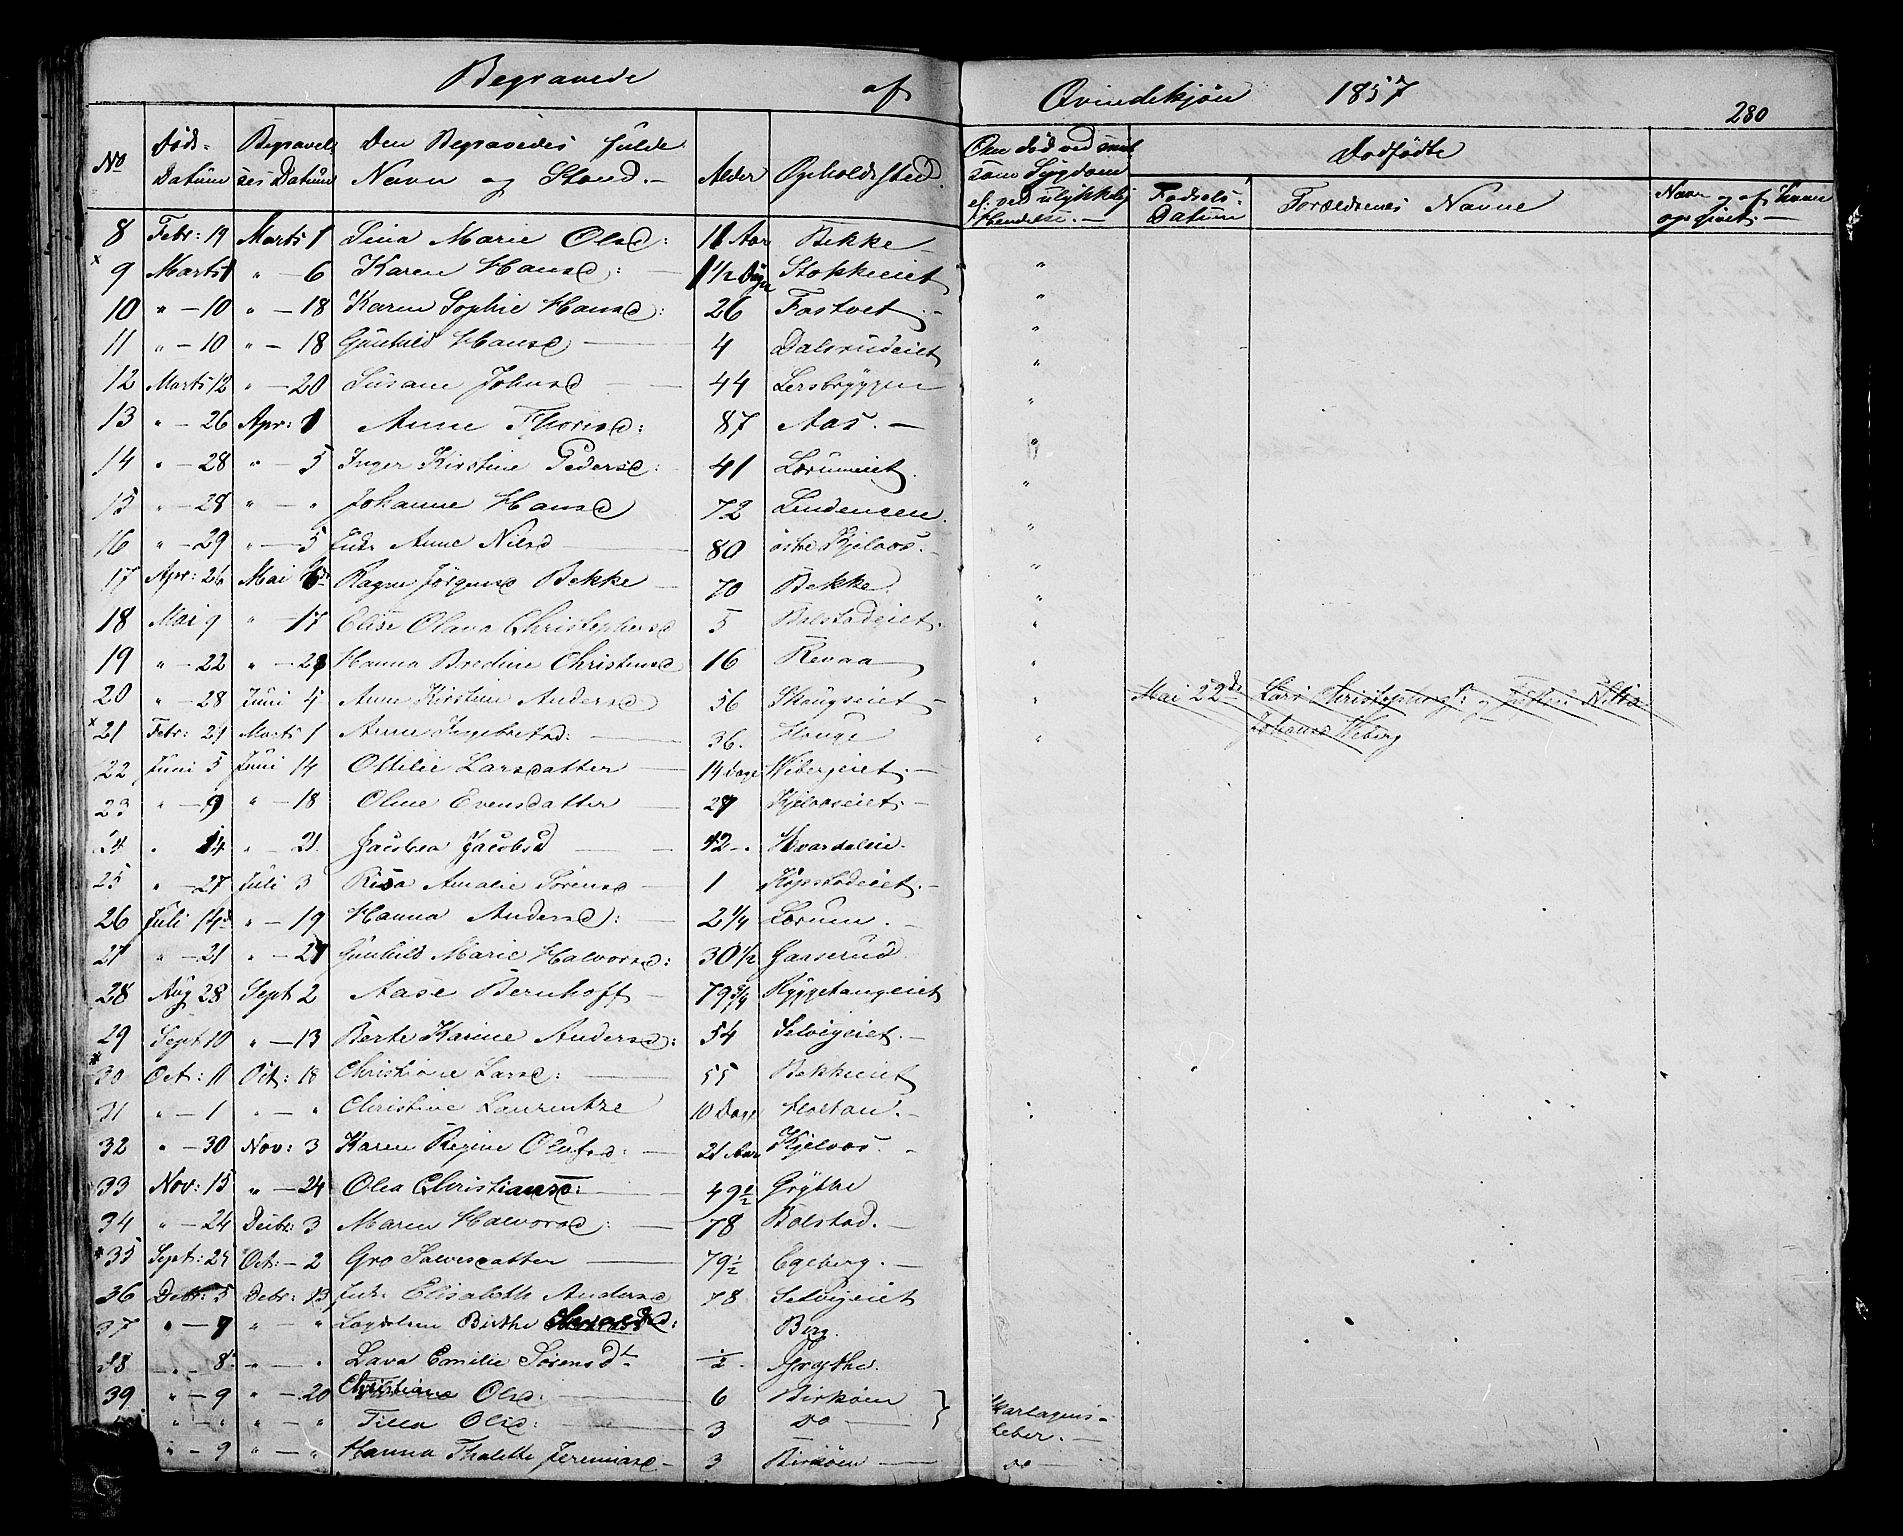 Begravede af Qvindekjøn 1857
280
No Døds-Datum Begravelses Datum Den Begravedes fulde Navn og Stand.- Alder Opholdssted. Om død ved smitsom Sygdom el: ved ulykkelig Hendelse.- Dødfødte Fødsels-Datum Forældrenes Navne
8 Febr: 19 Marts 1 Lina Marie Olsd: 11 Aar Bekke -
9 Marts 1 " - 6 Karen Hansd: - 1 1/2 Døgn Stokkeeiet "
10 " - 10 " - 18 Karen Sophie Hansd: 26 Fostvet. - "
11 " - 10 " - 18 Gunhild Hansd - 4 Dalsrudeiet "
12 Marts 12 " - 20 Susane Johnsd - 44 Lersbryggen "
13 " - 26 Apr: 1 Anne Thorsd: 87 Aas. - "
14 " - 28 " - 5 Inger Kirstine Pedersd: 41 Lorumeiet. "
15 " - 28 " - " Johanne Hansd 72 Lindeneen. "
16 " - 29 " - 5 Anne Nilsd - 80 østre Kjelaas. - "
17 Apr: 26 Mai Ragne Jørgensd Bekke - 70 Bekke. "
18 Mai 9 " - 17 Elise Olava Christophersd 5 Bolstadeiet. "
19 " - 22 " - Hanna Bredine Christensd 16 Revaa - "
20 " - 28 Juni 4 Anne Kirstine Andersd 56 Skougseiet - " Mai 22de Lars
21 Febr: 21 Marts 1 Anne Ingebretsd: - 36. Houge " Johanes Weberg
22 Juni 5 Juni 14 Ottilie Larsdatter - 14 Dage Webergeiet. -
23 " - 9 " - 18 Oline Evensdatter - 27 Kjelaaseiet. -
24 " 14 " - 21. Jacobea Jacobsd - 42 -. Hvardaleie.
25 " - 27 Juli 3 Risa Amalie Sørensd - 1 Kopstadeiet. -
26 Juli 14d " - 19 Hanna Andersd: - 2 1/4 Lorum. -
27 " - 21 " - 27 Gunhild Marie Halvorsd: 30 1/2 Gaaserud
28 Aug 28 Sept 2 Aase Bernhoff - 79 3/4 Ryggetangeiet
29 Sept 10 " - 13 Berte Karine Andersd: 54 Selvigeiet. -
30 Oct: 11 Oct: 18 Christiane Larsd: - 55 Bekkeeiet
31 " - 1 " - " Christine Laurentze 10 Dage
32 " - 30 Nov: 3 Karen Regine Olufsd: - 21 Aar Kjelaas. -
33 Nov: 15 " - 24 Olea Christiansd: - 49 1/2 Grythe
34 " - 24 Decbr: 3 Maren Halvorsd: - 78 Bolstad. -
35 Sept: 25 Oct: - 2 Gro Salvesdatter - 79 1/2 Egeberg. -
36 Decbr: 5 Debr: 13 Elisabeth Andersd 78 Selvigeiet
37 " - 7 " - " Birthe Berg.
38 " - 8 " - " Lava Emilie Sørensdt 1/2 Grythe.
39 " - 9 " - 20 Christiane Olsd: - 6 Birkøen Skarlagens-
" - " " - " Tilla Olsd: - 3 do - feber. -
" - 9 " - " Hanna Thalette Jeremiasd - 3 Birkøen - do -